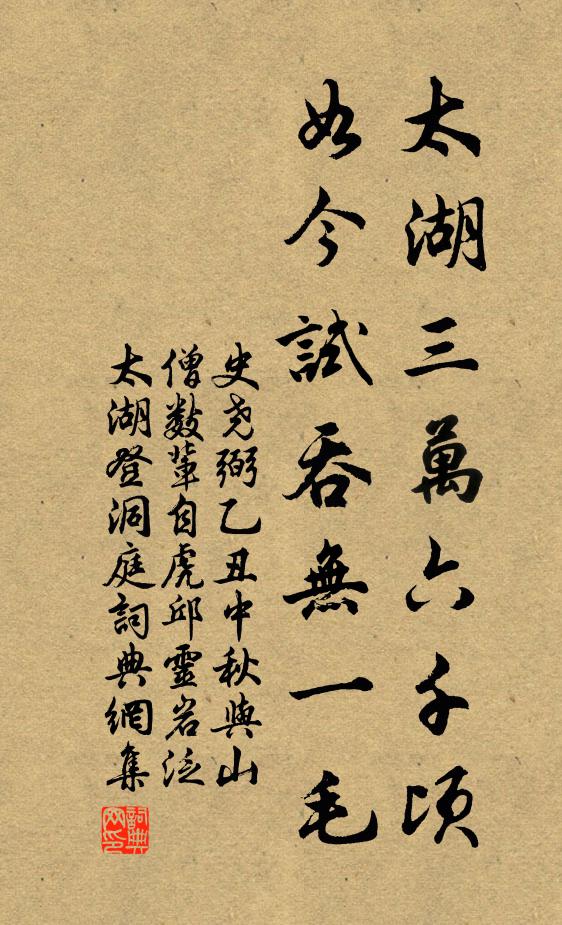 太湖三萬六千頃
如今試吞無一毛
史堯弼乙丑中秋與山
僧數輩自虎邱靈岩泛
太湖登洞庭詞典網集
詞典网印